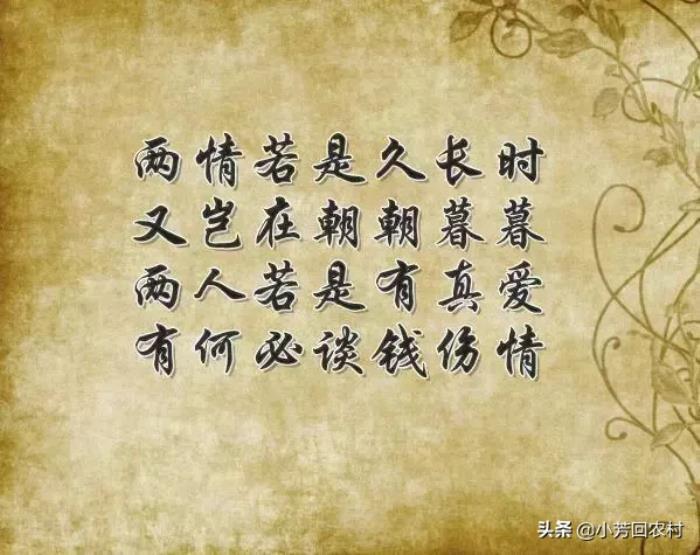 两情若是久长时
又岂在朝朝暮暮
两人若是有真爱
有何必谈钱伤情
头条 @小芳回农村